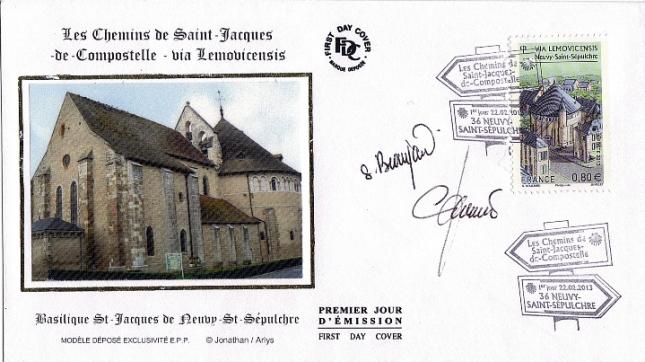 Les Chemins de Saint-Jacques
-de-Compostelle - via Lemovicensis
FIRST DAY COVER
FDC
MARQUE DÉPOSÉE
Les Chemins de
Saint-Jacques-
de-Compostelle
1er jour 22.02.2013
36 NEUVY-
SAINT-SÉPULCHRE
VIA LEMOVICENSIS
Neuvy-Saint-Sépulchre
FRANCE 0,80 €
S. Beaujard
Les Chemins de
Saint-Jacques-
de-Compostelle
1er jour 22.02.2013
36 NEUVY-
SAINT-SÉPULCHRE
Basilique St-Jacques de Neuvy-St-Sépulchre
MODÈLE DÉPOSÉ EXCLUSIVITÉ E.P.P. © Jonathan / Arlys
PREMIER JOUR
D'ÉMISSION
FIRST DAY COVER